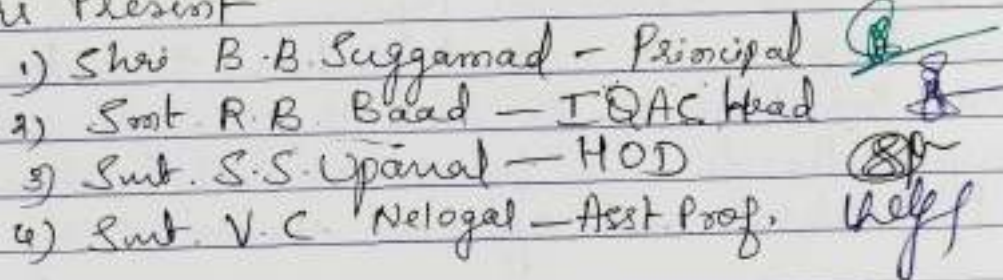 Present
1) Shri B.B. Suggamad - Principal
2) Smt. R.B. Baad - IQAC Head
3) Smt. S.S. Upanal - HOD
4) Smt. V.C. Nelogal - Asst Prof.